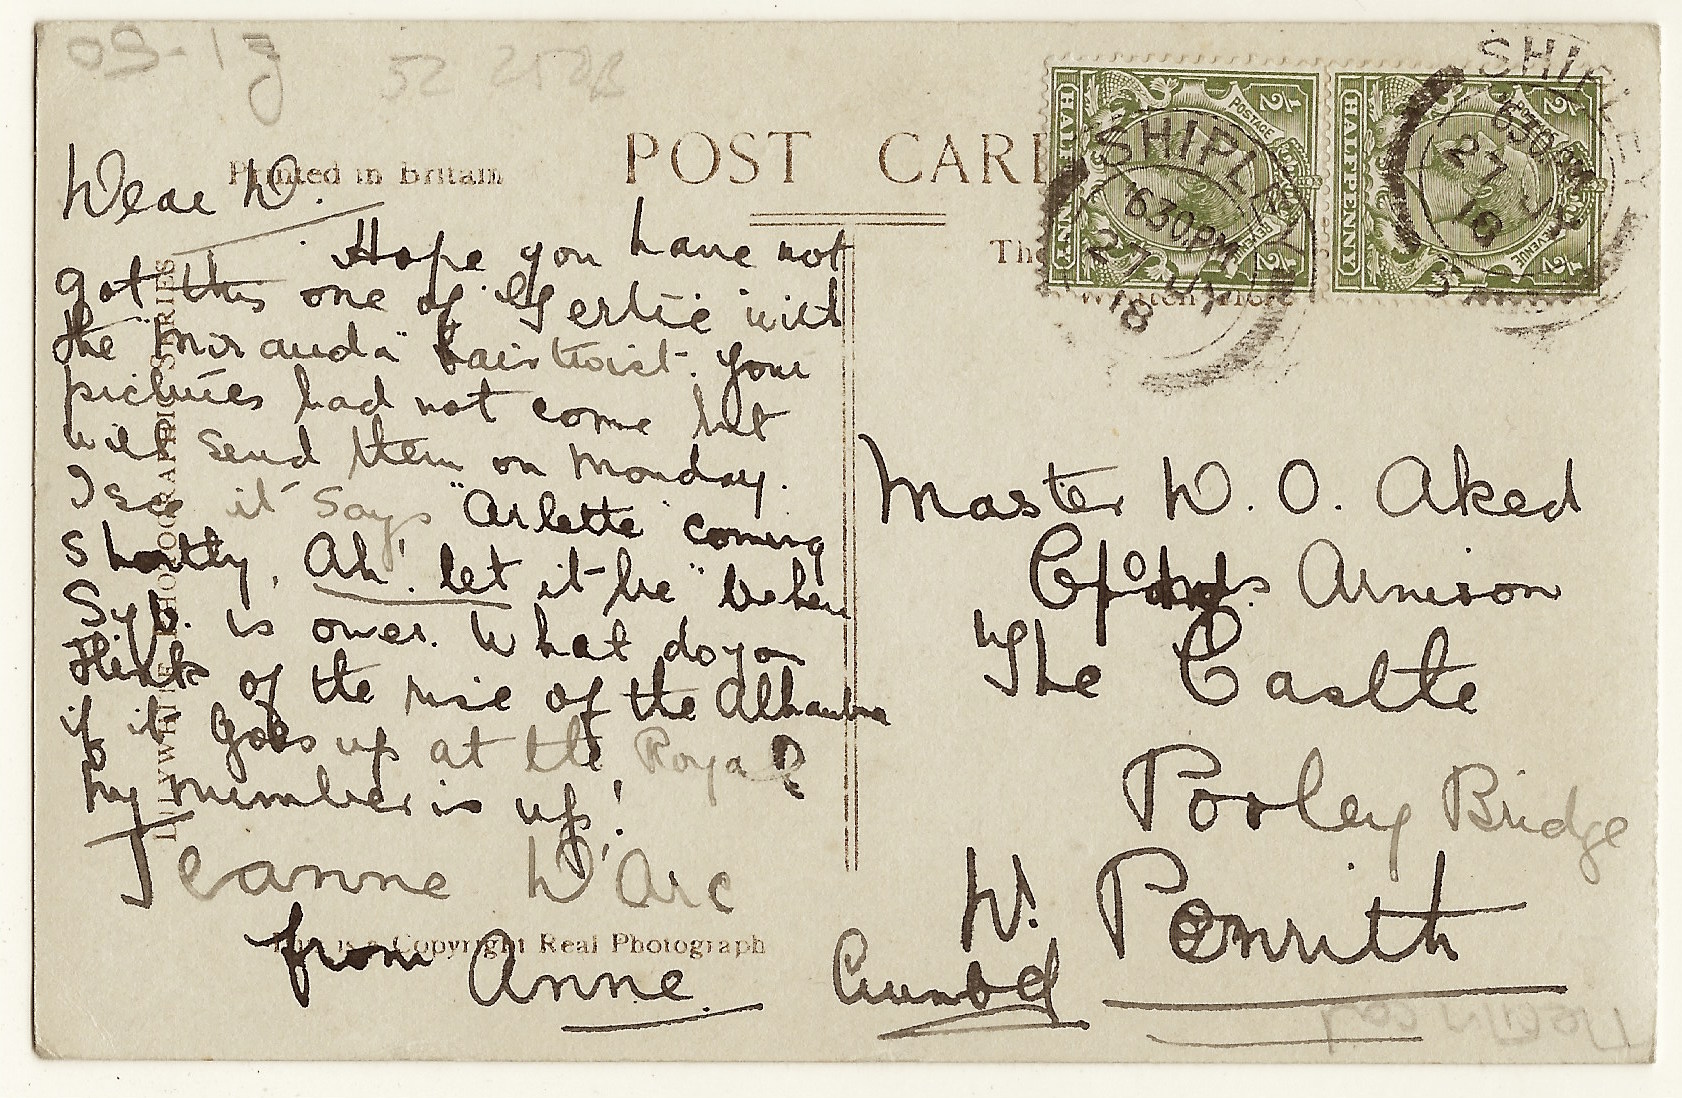 POST CARD
Printed in Britain
Dear W.
Hope you have not
got this one of Gertie with
the "Miranda" hair twist. Your
pictures had not come but
will send them on Monday.
I see it says "Arlette" coming
shortly, Ah! let it be" when
Syb. is over. What do you
think of the rise of the Alhambra
if it goes up at the Royal
my number is up!
Jeanne D'Arc
from Anne.
LILYWHITE PHOTOGRAPHIC SERIES
This is a Copyright Real Photograph
HALFPENNY
POSTAGE
REVENUE
1/2
HALFPENNY
POSTAGE
REVENUE
1/2
SHIPLEY
6 30 PM
27 JY
18
SHIPLEY
6 30 PM
27 JY
18
Master W. O. Aked
C/o Arnison
The Castle
Pooley Bridge
Nr. Penrith
Cumbld
52